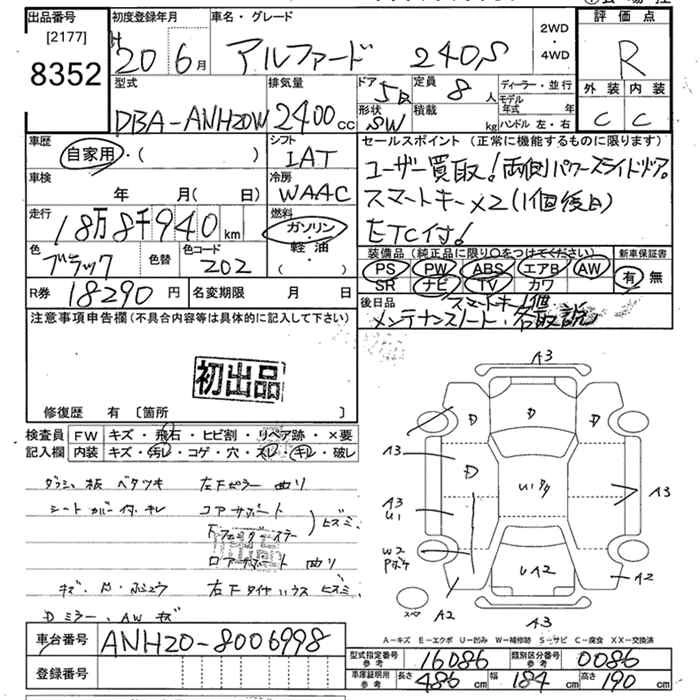 出品番号 初度登録年月 車名・グレード 2WD・4WD 評価点
[2177]
8352
H 20 6月 アルファード 240S R
型式 排気量 ドア 5D 定員 8人 ディーラー・並行 外装 内装
DBA-ANH20W 2400cc 形状 SW 積載 kg モデル年式 年 ハンドル 左・右 C C
車歴 自家用・( ) シフト IAT
セールスポイント (正常に機能するものに限ります)
ユーザー買取!両側パワースライドドア。
スマートキーX2(1個後日)
ETC付!
車検 年 月( 日) 冷房 WAAC
走行 18万8千940km 燃料 ガソリン・軽油・( )
色 ブラック 色替 色コード 202
装備品 (純正品に限り○をつけてください) 新車保証書
PS PW ABS エアB AW 有・無
SR ナビ TV カワ
R券 18290円 名変期限 月 日
後日品 スマートキー1個
メンテナンスノート・各取説
注意事項申告欄 (不具合内容等は具体的に記入して下さい)
初出品
修復歴 有 [箇所 ]
検査員 FW キズ・飛石・ヒビ割・リペア跡・×要
記入欄 内装 キズ・汚レ・コゲ・穴・スレ・キレ・破レ
ダッシュ板 ベタツキ 左下ピラー 曲リ
シートカバー付・キレ コアサポート
ヒズミ
ロアサポート 曲リ
右下タイヤハウス ヒズミ
Dミラー、AW キズ
A3
D D D
A3 D
A3 U1
A3
W2
A2 UA2 A2
スペア
A3
A-キズ E-エクボ U-凹み W-補修跡 S-サビ C-腐食 XX-交換済
車台番号 ANH20-8006998
型式指定番号 参考 16086 類別区分番号 参考 0086
登録番号
車庫証明用 参考 長さ 486cm 幅 184cm 高さ 190cm